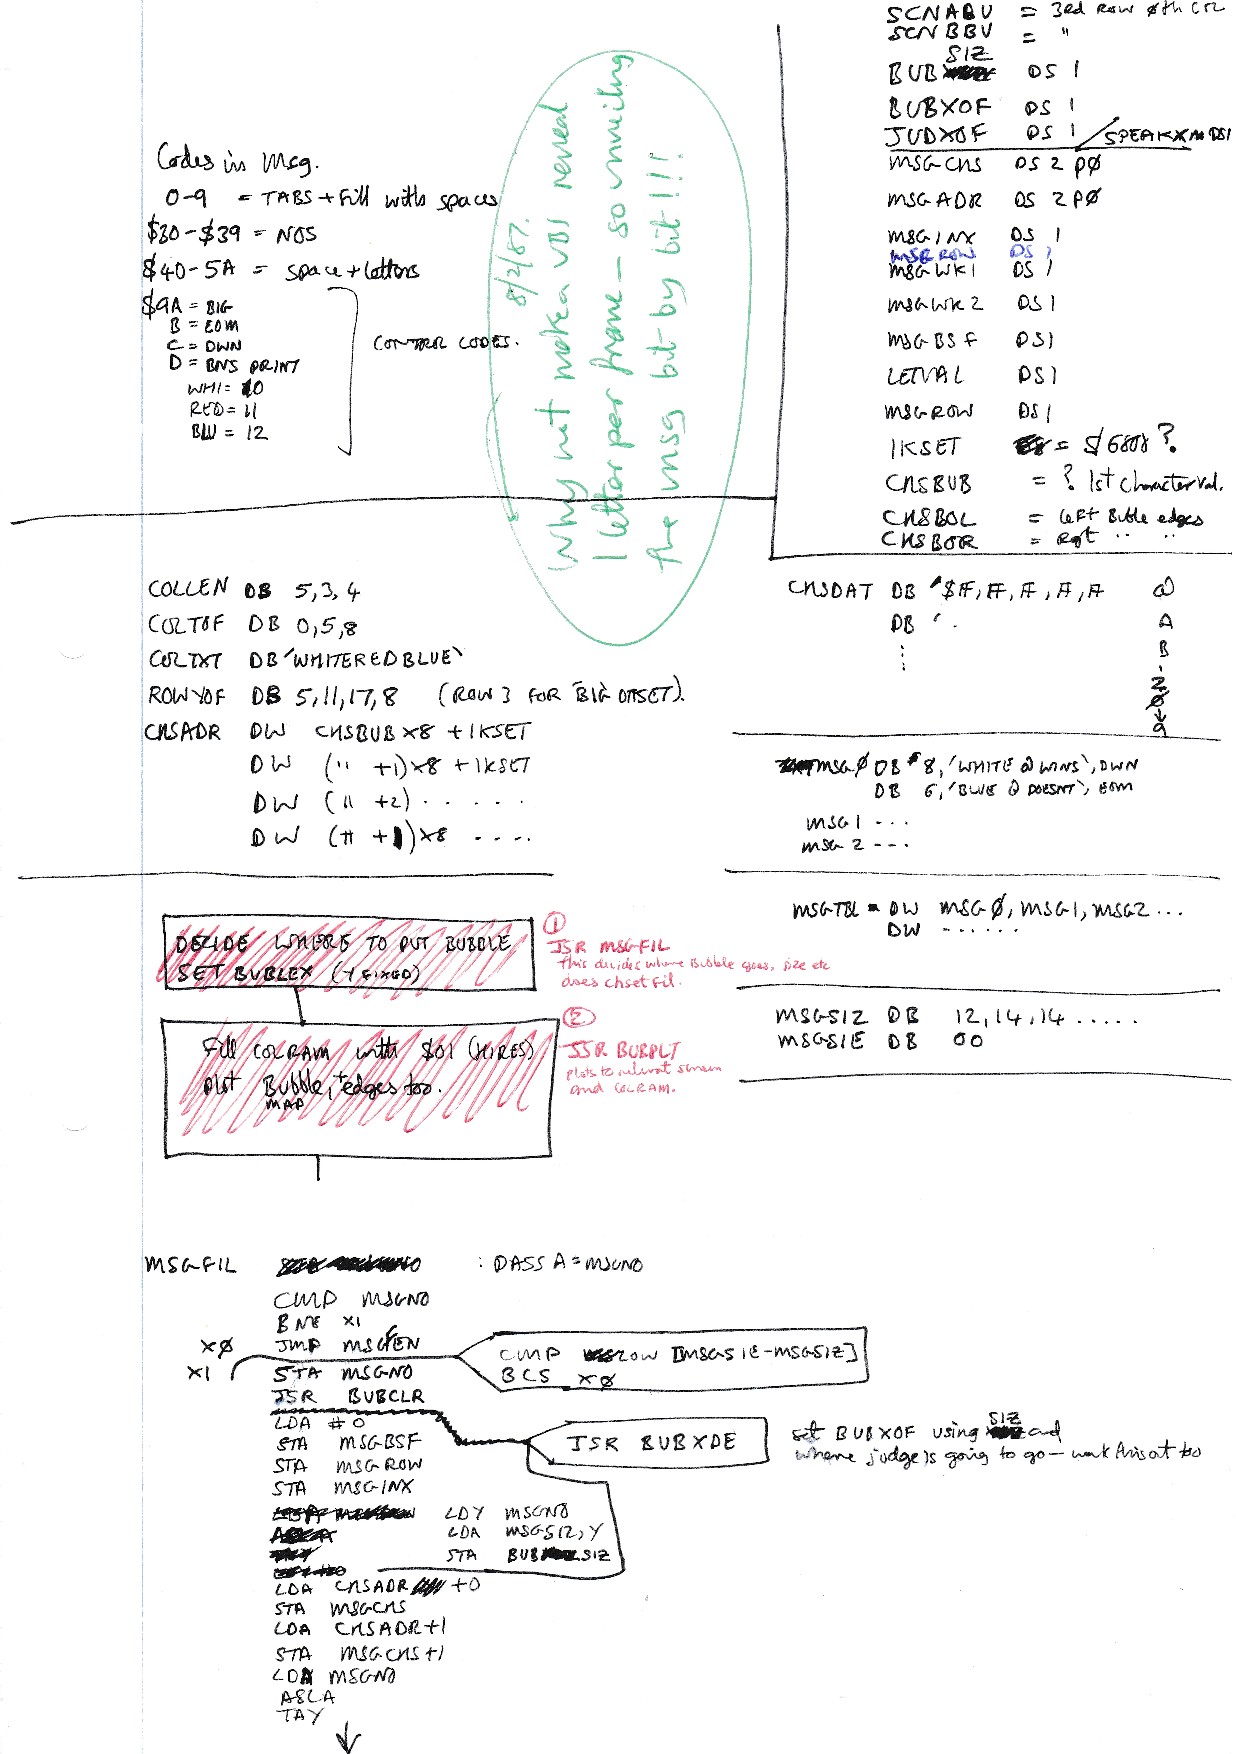 SCNABU = 3rd Row 0th COL
SCNBBU = "
SIZ
BUB DS 1
BUBXOF DS 1
JUDXOF DS 1 / SPEAKXM DS1
MSGCHS DS 2 PØ
MSGADR DS 2 PØ
MSGINX DS 1
MSGROW DS 1
MSGWK1 DS 1
MSGWK2 DS1
MSGBSF DS1
LETVAL DS1
MSGROW DS1
1KSET = $6808 ?
CHSBUB = ? 1st Character Val.
CHSBOL = Left Bubble edges
CHSBOR = Rgt " "
Codes in Msg.
0-9 = TABS + Fill with spaces
$30-$39 = NOS
$40-5A = space + letters
$9A = BIG
B = EOM
C = DWN
D = BNS PRINT
WHI = 10
RED = 11
BLU = 12
CONTROL CODES.
8/2/87.
Why not make a VBI reveal
1 letter per frame - so unveiling
the msg bit by bit!!!
COLLEN DB 5,3,4
COLTOF DB 0,5,8
COLTXT DB 'WHITEREDBLUE'
ROWYOF DB 5,11,17,8 (ROW 3 FOR BIG OFFSET).
CHSADR DW CHSBUB×8 + 1KSET
DW (" +1)×8 + 1KSET
DW (" +2) . . . . .
DW (" +1)×8 - - - .
CHSDAT DB $FF, FF, FF, FF, FF @
DB ' . A
B
Z
9
MSGØ DB 8, 'WHITE @ WINS', DWN
DB 6, 'BLUE @ DOESNT', EOM
MSG1 - - -
MSG2 - - -
MSGTBL = DW MSGØ, MSG1, MSG2 ...
DW - - - - - -
MSGSIZ DB 12,14,14 .....
MSGSIE DB 00
DECIDE WHERE TO PUT BUBBLE
SET BUBLEX (Y FIXED)
①
JSR MSGFIL
this decides where Bubble goes, size etc
does chset fil.
Fill COLRAM with $01 (HIRES)
plot Bubble, + edges too.
MAP
②
JSR BUBPLT
plots to relevant screen
and COLRAM.
MSGFIL : PASS A = MSGNO
CMP MSGNO
BNE X1
XØ JMP MSGFEN
CMP LOW [MSGSIE-MSGSIZ]
BCS XØ
X1 STA MSGNO
JSR BUBCLR
LDA #0
STA MSGBSF
JSR BUBXDE
set BUBXOF using SIZ and
where judge is going to go - work this out too
STA MSGROW
STA MSGINX
LDY MSGNO
LDA MSGSIZ,Y
STA BUBSIZ
LDA CHSADR +0
STA MSGCHS
LDA CHSADR+1
STA MSGCHS+1
LDA MSGNO
ASLA
TAY